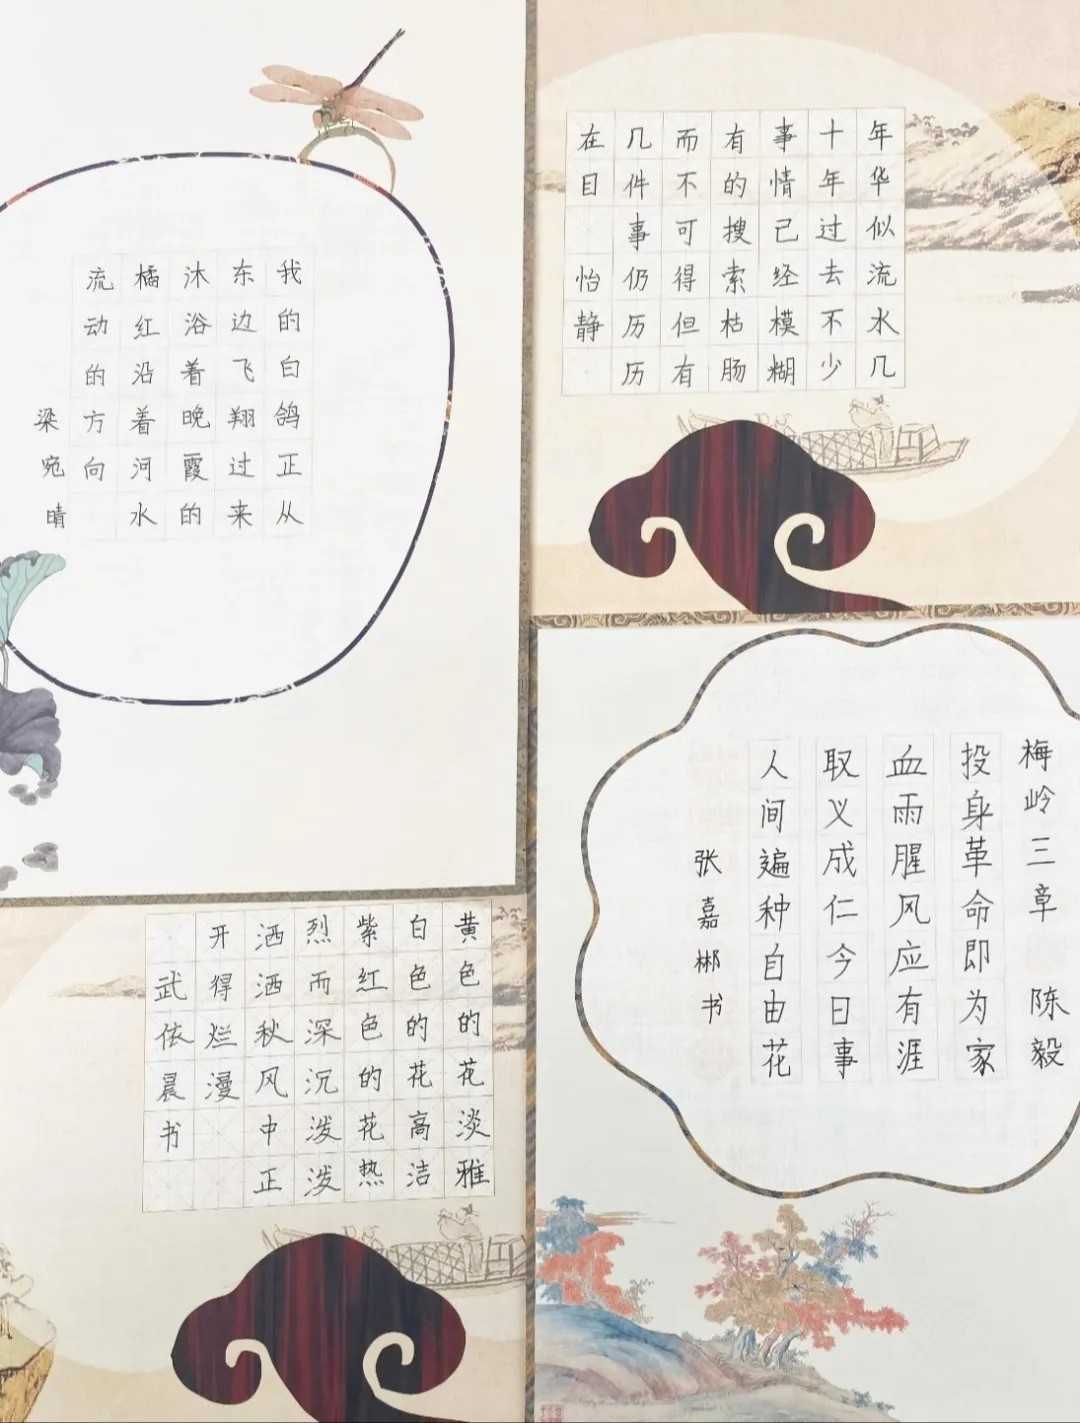 我的白鸽正从
东边飞翔过来
沐浴着晚霞的
橘红沿着河水
流动的方向
梁宛晴
年华似流水几
十年过去不少
事情已经模糊
有的搜索枯肠
而不可得但有
几件事仍历历
在目 怡静
黄色的花淡雅
白色的花高洁
紫红色的花热
烈而深沉泼泼
洒洒秋风中正
开得烂漫
武依晨书
梅岭三章 陈毅
投身革命即为家
血雨腥风应有涯
取义成仁今日事
人间遍种自由花
张嘉郴书